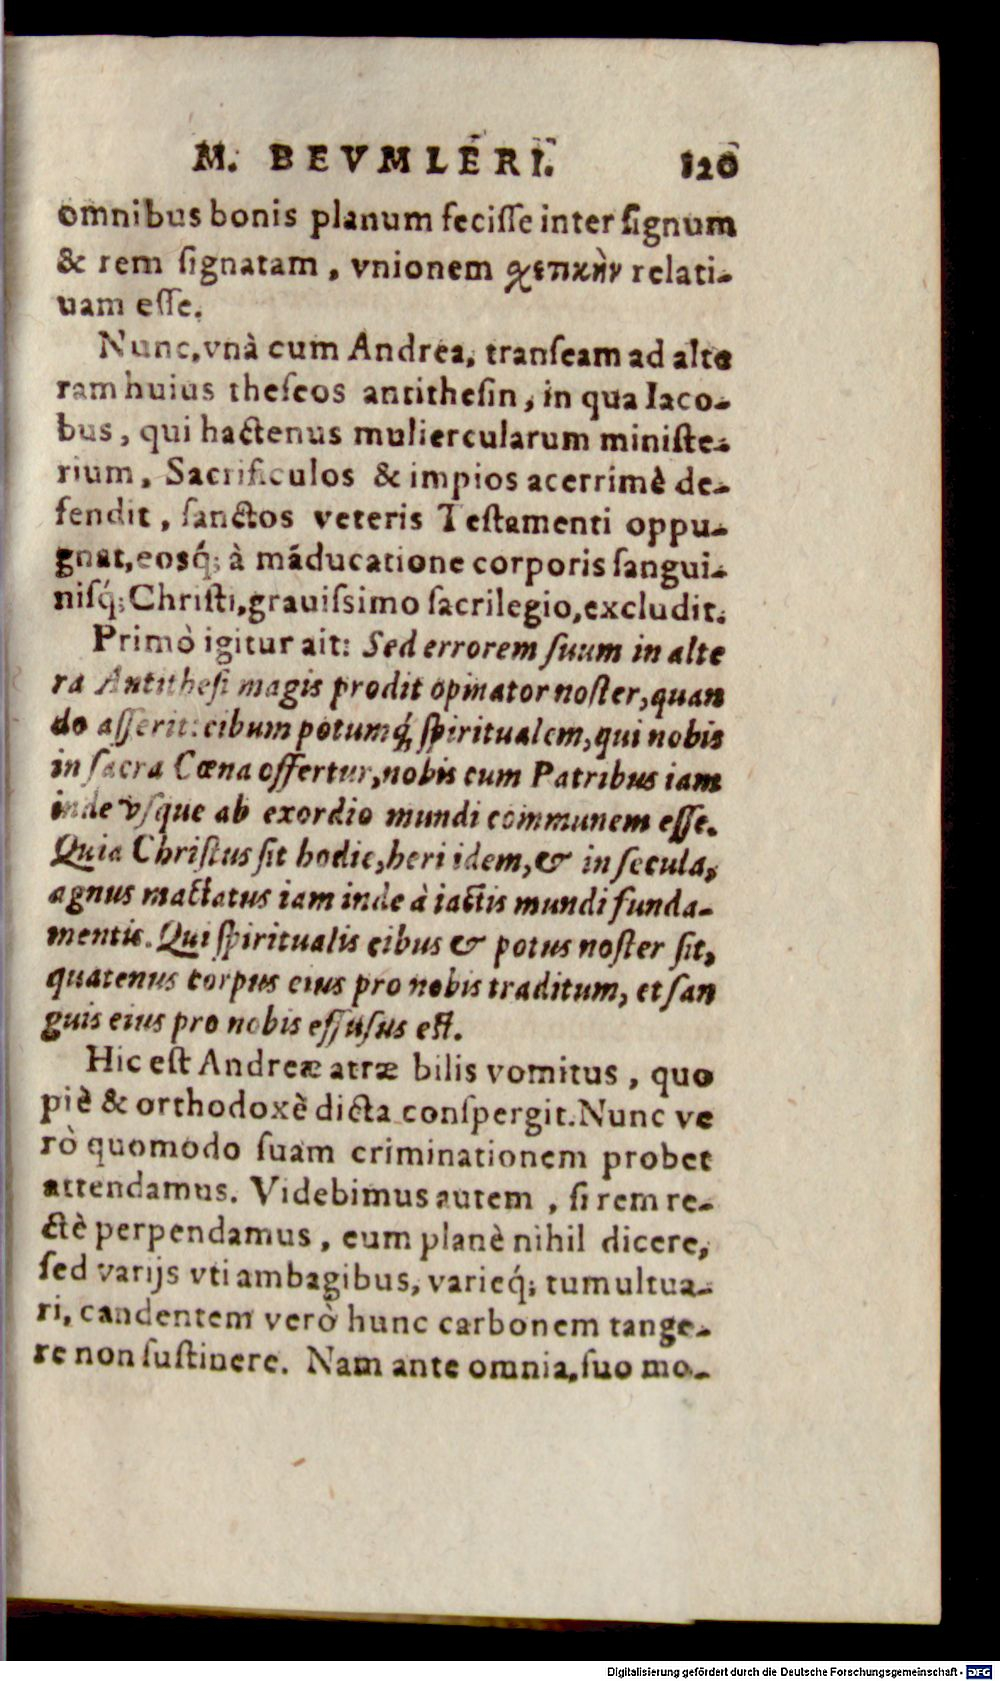 M. BEVMLERI. 120
omnibus bonis planum fecisse inter signum
& rem signatam, vnionem σχετικὴν relati-
uam esse.
Nunc, vnà cum Andrea, transeam ad alte
ram huius theseos antithesin, in qua Iaco-
bus, qui hactenus muliercularum ministe-
rium, Sacrificulos & impios acerrimè de-
fendit, sanctos veteris Testamenti oppu-
gnat, eosq́; à māducatione corporis sangui-
nisq́; Christi, grauissimo sacrilegio, excludit.
Primò igitur ait: Sed errorem suum in alte
ra Antithesi magis prodit opinator noster, quan
do asserit: cibum potumq́, spiritualem, qui nobis
in sacra Cœna offertur, nobis cum Patribus iam
inde vsque ab exordio mundi communem esse.
Quia Christus sit hodie, heri idem, & in secula,
agnus mactatus iam inde à iactis mundi funda-
mentis. Qui spiritualis cibus & potus noster sit,
quatenus corpus eius pro nobis traditum, et san
guis eius pro nobis effusus est.
Hic est Andreæ atræ bilis vomitus, quo
piè & orthodoxè dicta conspergit. Nunc ve
rò quomodo suam criminationem probet
attendamus. Videbimus autem, si rem re-
ctè perpendamus, eum planè nihil dicere,
sed varijs vti ambagibus, varieq́; tumultua-
ri, candentem verò hunc carbonem tange-
re non sustinere. Nam ante omnia, suo mo-
Digitalisierung gefördert durch die Deutsche Forschungsgemeinschaft - DFG